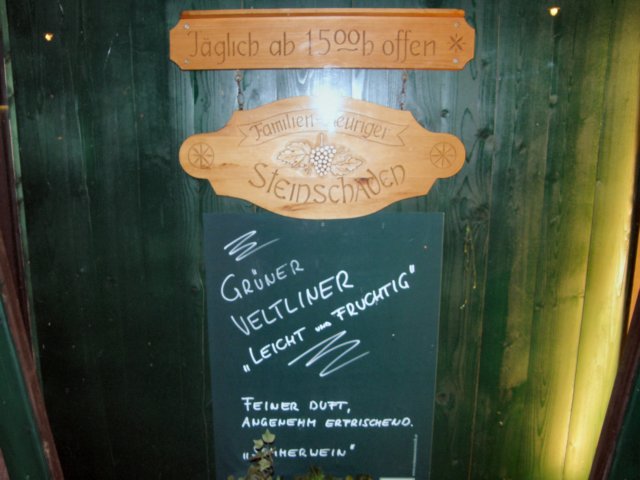 Täglich ab 15 00 h offen
Familien-Heuriger
Steinschaden
GRÜNER
VELTLINER
„LEICHT und FRUCHTIG"
FEINER DUFT,
ANGENEHM ERFRISCHEND.
„SOMMERWEIN"